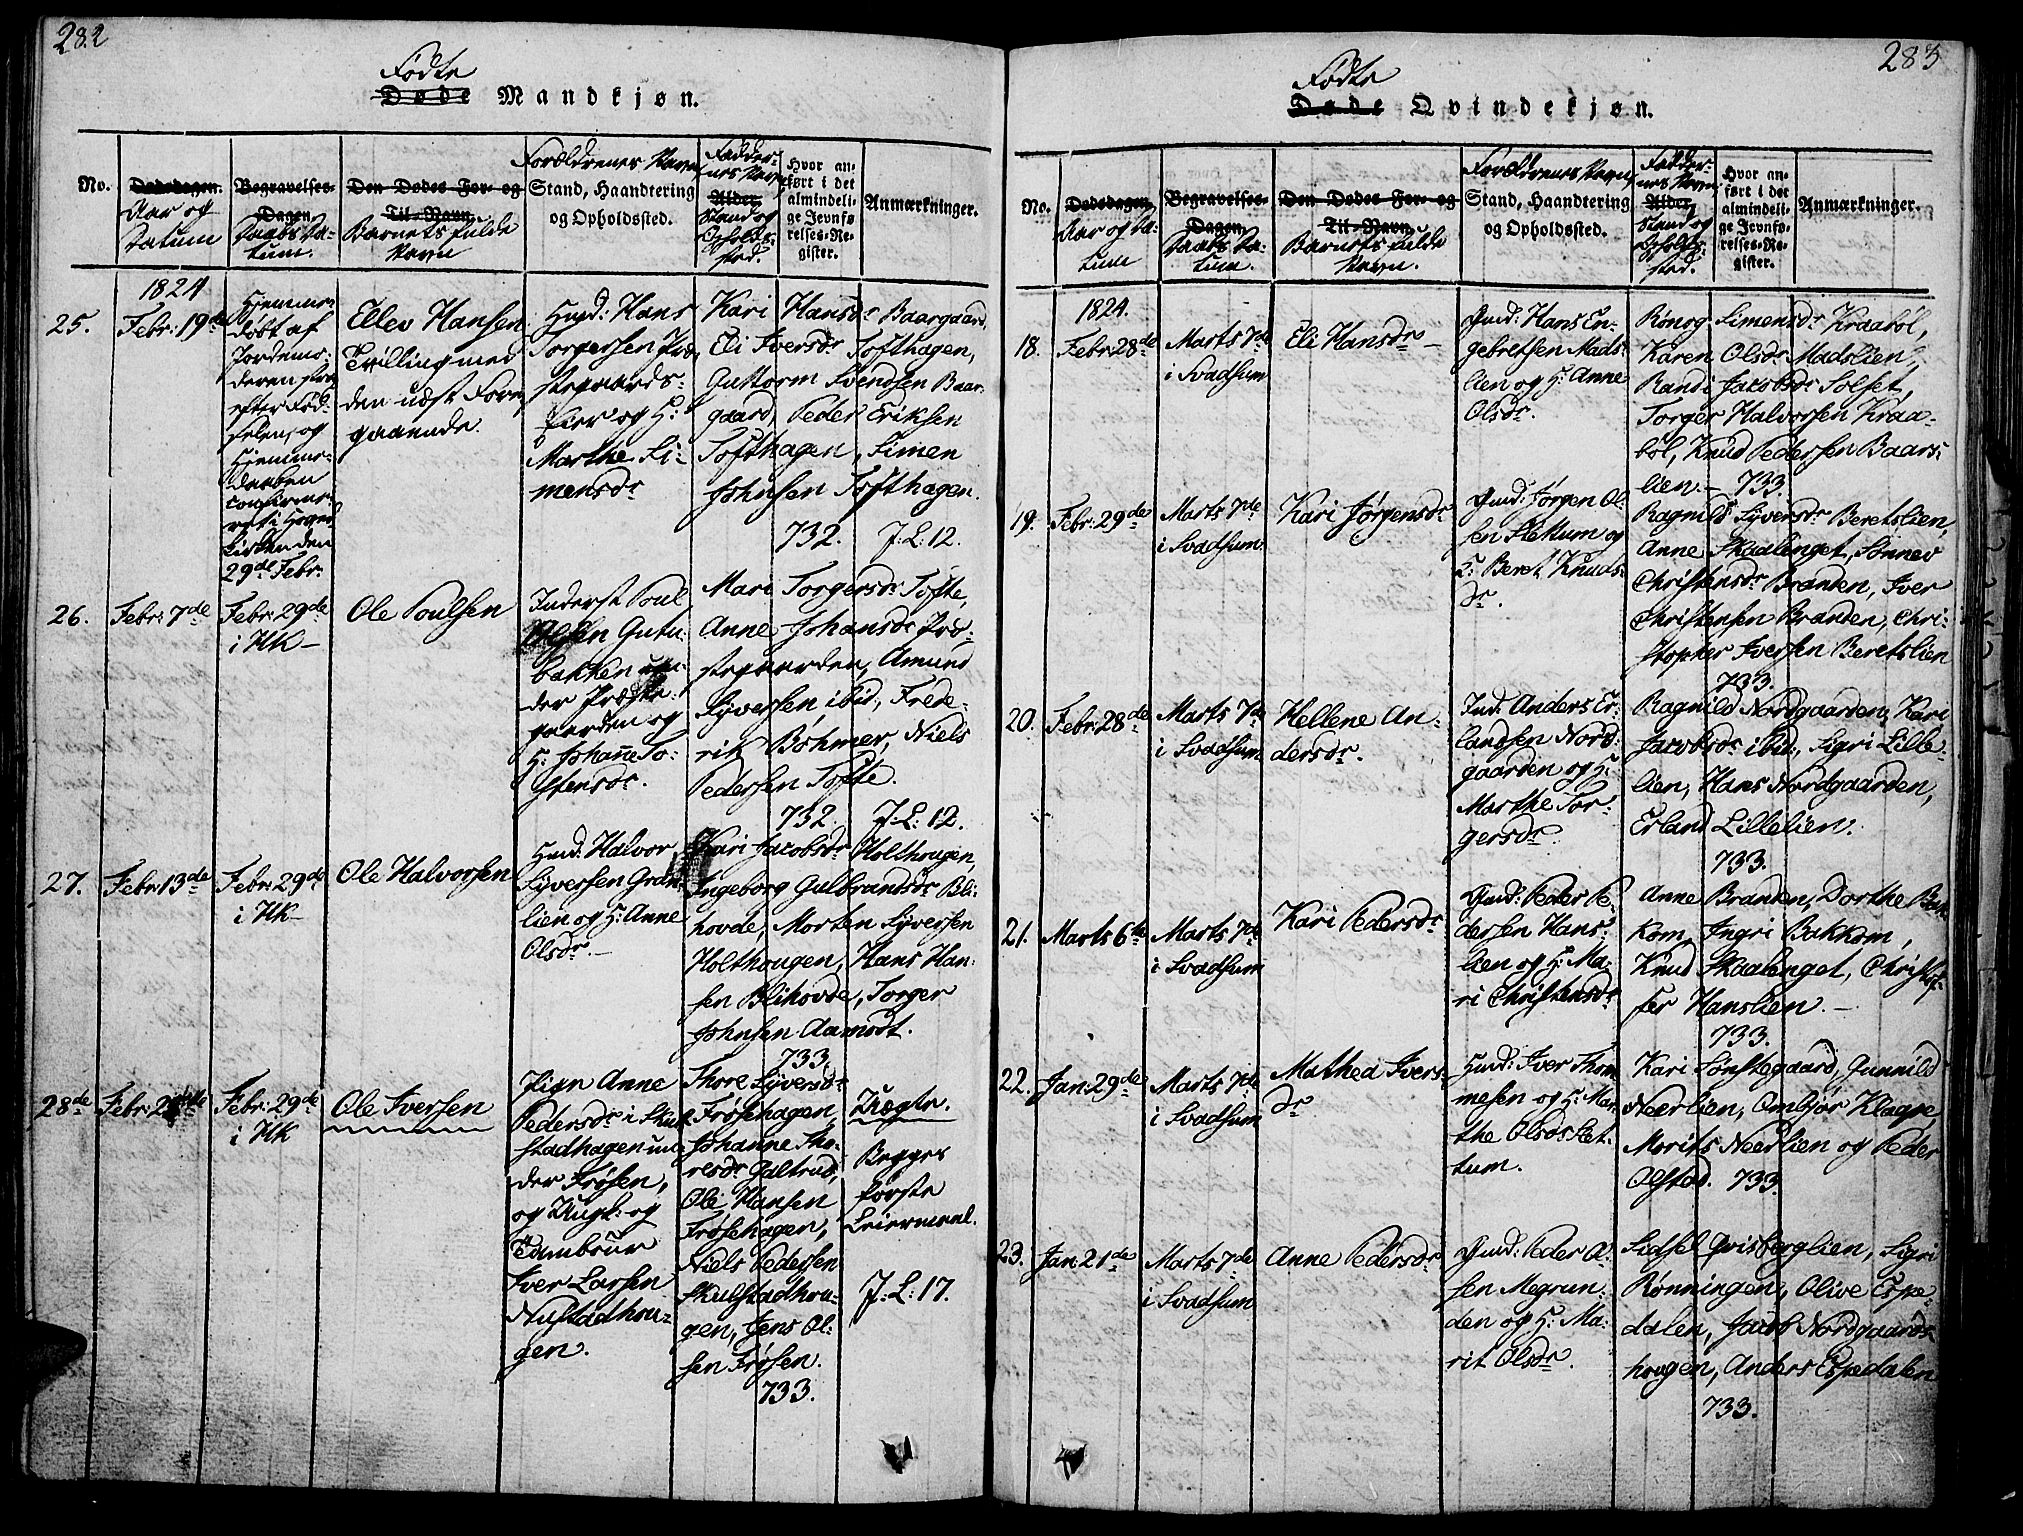 282
Fødte
Døde Mandkjøn.
No.
Dødsdagen.
Aar og
Datum
Begravelses-
Dagen
Daabs Da-
tum.
Den Dødes For- og
Til-Navn
Barnets fulde
Navn
Forældrenes Navn
Stand, Haandtering
og Opholdssted.
Fadder-
nes Navn
Alder
Stand og
Opholds-
sted.
Hvor an-
ført i det
almindeli-
ge Jevnfø-
relses-Re-
gister.
Anmærkninger.
1824
25.
Febr: 19de
Hjemme-
døbt af
Jordemo-
deren strax
efter Fød-
selen, og
Hjemme-
daaben
confirme-
ret i Hoved
Kirken den
29de Febr:
Ellev Hansen
Tvilling med
den næst Foren-
gaaende.
Huusd: Hans
Torgersen Præ-
stegaards-
eier og H:
Marthe Si-
mensdr
Kari Hansdr Baargaard,
Eli Iversdr Tofthagen,
Guttorm Svendsen Baar-
gaard, Peder Eriksen
Tofthagen, Simen
Johnsen Tofthagen.
732. J: L: 12.
26.
Febr: 7de
Febr: 29de
i HK-
Ole Poulsen
Inderst Poul
Olsen Gutu-
bakken un-
der Præste-
gaarden og
H: Johanne To-
stensdr.
Mari Torgersdr Tofte,
Anne Johansdr Præ-
stegaarden, Amund
Syversen ibid, Frede-
rik Bøhmer, Niels
Pedersen Tofte.
732. J: L: 12.
27.
Febr: 13de
Febr: 29de
i HK-
Ole Halvorsen
Huusd: Halvor
Syversen Gran-
lien og H: Anne
Olsdr.
Kari Jacobsdr Holthougen,
Ingeborg Gulbrandsdr Bli-
hovde, Morten Syversen
Holthougen, Hans Han-
sen Blihovde, Torger
Johnsen Aamodt.
733.
28de
Febr:
Febr: 29de
i HK
Ole Iversen
Pige Anne
Pedersdr i Skul-
stadhagen un-
der Frøsen,
og Ungk: og
Tambour
Iver Larsen
Nustadhou-
gen.
Thore Syversdr
Frøsehagen,
Johanne Tho-
resdr Galtrud,
Ole Hansen
Frøsehagen,
Niels Pedersen
Skulstadhou-
gen, Jens Ol-
sen Frøsen.
733.
Uægte.
Begges
første
Leiermaal.
J: L: 17.
283
Fødte
Døde Qvindekjøn.
No.
Dødsdagen
Aar og Da-
tum
Begravelses-
Dagen
Daabs Da-
tum.
Den Dødes For- og
Til-Navn
Barnets fulde
Navn.
Forældrenes Navn,
Stand, Haandtering
og Opholdssted.
Fadder-
nes Navn
Alder
Stand og
Opholds-
sted.
Hvor an-
ført i det
almindeli-
ge Jevnfø-
relses-Re-
gister.
Anmærkninger.
1824.
18.
Febr: 28de
Marts 7de
i Svadsum
Eli Hansdr
Huusd: Hans En-
gebretsen Mads-
lien og H: Anne
Olsdr.
Rønog Simensdr Kraabøl,
Karen Olsdr Madslien,
Randi Jacobsdr Solset,
Torger Halvorsen Kraa-
bøl, Knud Pedersen Baars-
lien. 733.
19.
Febr: 29de
Marts 7de
i Svadsum
Kari Jørgensdr
Huusd: Jørgen Ol-
sen Slettum og
H: Beret Knuds-
dr.
Ragnild Syversdr Beretslien,
Anne Skaalenget, Sønnev
Christensdr Branden, Iver
Christensen Branden, Chri-
stopher Iversen Beretslien
733.
20.
Febr: 28de
Marts 7de
i Svadsum
Hellene An-
dersdr.
Ind: Anders Er-
landsen Nord-
gaarden og H:
Marthe Tor-
gersdr
Ragnild Nordgaarden, Kari
Jacobsdr ibid:, Sigri Lille-
lien, Hans Nordgaarden,
Erland Lillelien.
733.
21.
Marts 6te
Marts 7de
i Svadsum
Kari Pedersdr
Huusd: Peder Pe-
dersen Hans-
lien og H: Ma-
ri Christensdr
Anne Branden, Dorthe Bak-
kom, Ingri Bakkom,
Knud Skaalenget, Christof-
fer Hanslien.
733.
22.
Jan: 29de
Marts 7de
i Svadsum
Mathea Ivers-
dr
Huusd: Iver Thom-
mesen og H: Mar-
the Olsdr Slet-
tum.
Kari Sønstegaard, Gunnild
Neerlien, Ombjør Klagge,
Morits Neerlien og Peder
Olstad. 733.
23.
Jan: 21de
Marts 7de
i Svadsum
Anne Pedersdr
Huusd: Peder Ol-
sen Megrun-
den og H: Ma-
rit Olsdr.
Sidsel Qvisberglien, Sigri
Rønningen, Olive Espe-
dalen, Jacob Nordgaards-
hougen, Anders Espedalen
733.